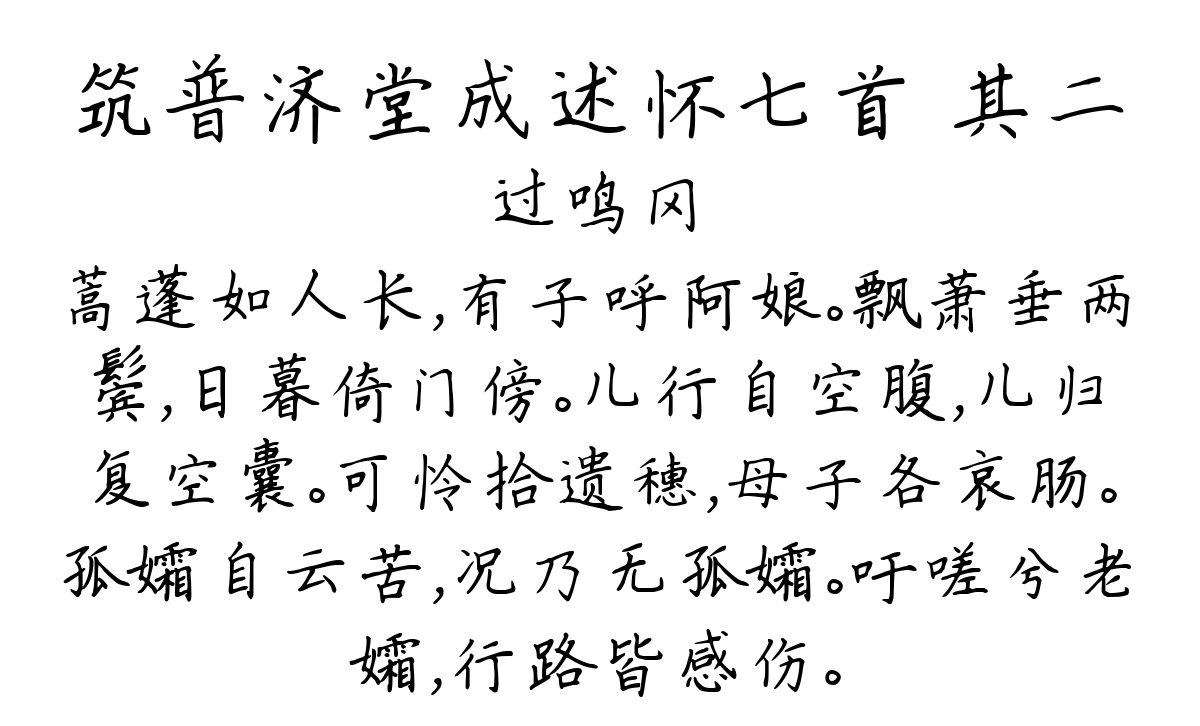 筑普济堂成述怀七首 其二
过鸣冈
蒿蓬如人长,有子呼阿娘。飘萧垂两
鬓,日暮倚门傍。儿行自空腹,儿归
复空囊。可怜拾遗穗,母子各哀肠。
孤孀自云苦,况乃无孤孀。吁嗟兮老
孀,行路皆感伤。